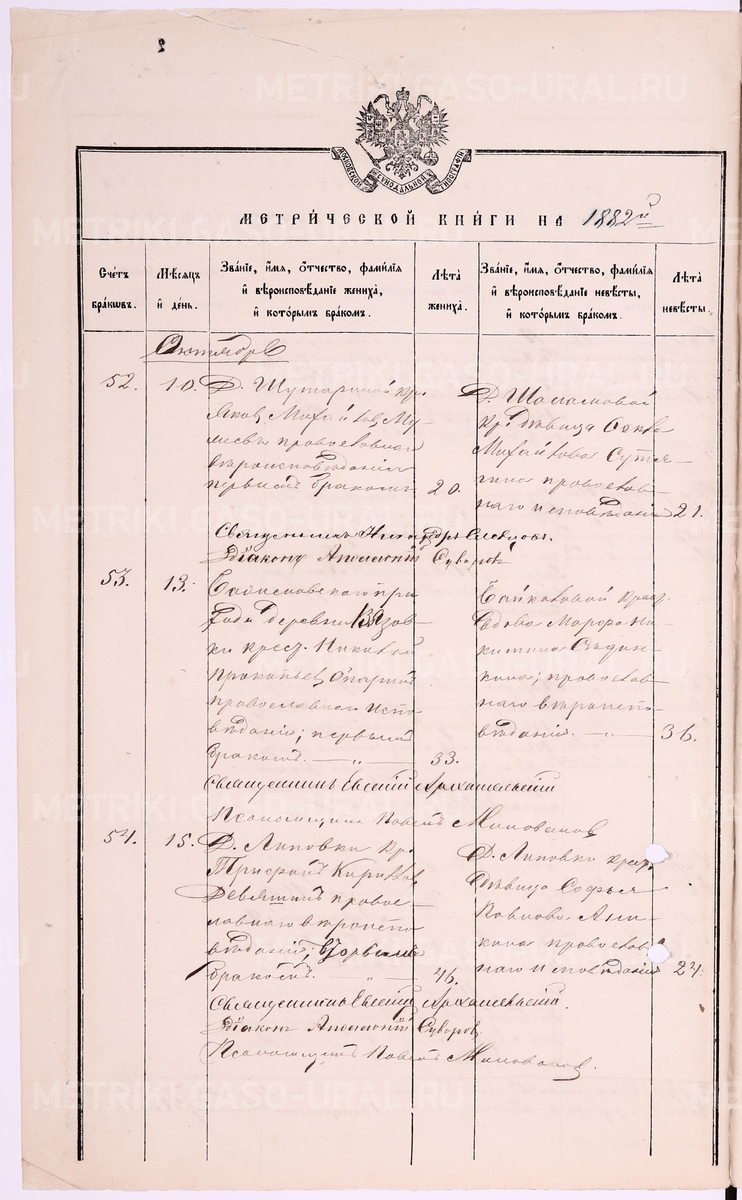 2
МОСКОВСКОЙ СИНОДАЛЬНОЙ ТИПОГРАФІИ
МЕТРИ́ЧЕСКОЙ КНИ́ГИ НА 1882й
Сче́тъ бра́кѡвъ.
Мѣ́сяцъ и҆ де́нь.
Зва́нїе, и҆́мя, ѻ҆́тчество, фами́лїя и҆ вѣроисповѣ́данїе жениха̀, и҆ кото́рымъ бра́комъ.
Лѣ́та жениха̀.
Зва́нїе, и҆́мя, ѻ҆́тчество, фами́лїя и҆ вѣроисповѣ́данїе невѣ́сты, и҆ кото́рымъ бра́комъ.
Лѣ́та невѣ́сты.
Октябрь
52.
10.
Д. кр.
Яковъ Михайловъ
православнаго
вѣроисповѣданія
первымъ бракомъ
20.
Д.
кр. дѣвица
Михайлова Сутя-
гина православ-
наго исповѣданія
21.
Священникъ
Діаконъ Суворовъ
53.
13.
при
хода деревни Вязов-
ки крест. Николай
Прокопьевъ
православнаго испо-
вѣданія; первымъ
бракомъ. — „ —
33.
Байковой крест.
вдова Марфа Ни-
китина
кина; православ-
наго вѣроиспо-
вѣданія. — „ —
36.
Священникъ Евгеній Архангельскій
Псаломщикъ Павелъ Миловановъ
54.
15.
Д. Липовки кр.
Трифонъ Кириловъ
Девяшинъ правос-
лавнаго вѣроиспо-
вѣданія; вторымъ
бракомъ. „ —
46.
Д. Липовки крест.
дѣвица Софья
Павлова Ани-
кина православ-
наго исповѣданія
24.
Священникъ Евгеній Архангельскій.
Діаконъ Суворовъ
Псаломщикъ Павелъ Миловановъ.
METRIKI.GASO-URAL.RU